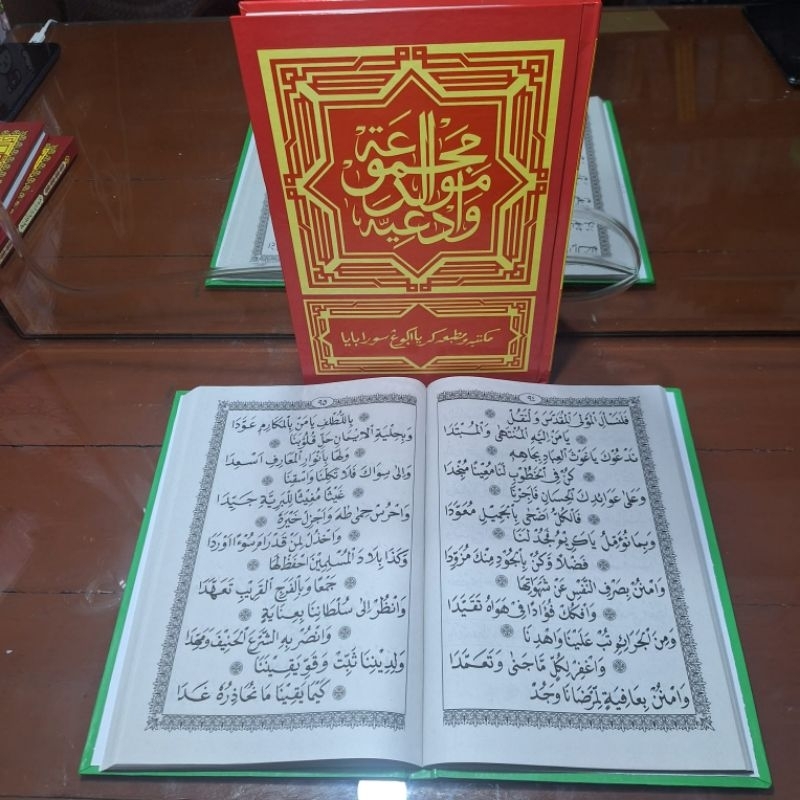 مجموعة
موالد
وأدعية
مكتبة ومطبعه كريااڬوڠ سورابايا
٩٤
فَلْنَسْأَلِ الْمَوْلَى الْمُقَدَّسَ وَلْنَقُلْ
يَا مَنْ إِلَيْهِ الْمُنْتَهَى وَالْمُبْتَدَا
نَدْعُوكَ يَاغَوْثَ الْعِبَادِ بِجَاهِهِ
كُنْ فِي الْخُطُوْبِ لَنَا مُغِيْثًا مُنْجِدَا
وَعَلَى عَوَائِدِكَ الْحِسَانِ فَاَجْرِنَا
فَالْكُلُّ اَضْحَى بِالْجَمِيْلِ مُعَوَّدَا
وَبِمَا نُؤَمِّلُ يَاكَرِيْمُ فَجُدْ لَنَا
فَضْلًا وَكُنْ بِالْجُوْدِ مِنْكَ مُزَوِّدَا
وَامْنُنْ بِصَرْفِ النَّفْسِ عَنْ شَهَوَاتِهَا
وَافْكُكْ فُؤَادًا فِى هَوَاهُ تَقَيَّدَا
وَمِنَ الْجَرَائِرِ تُبْ عَلَيْنَا وَاهْدِنَا
وَاغْفِرْ لِكُلٍّ مَاجَنَى وَتَعَمَّدَا
وَامْنُنْ بِعَافِيَةٍ لِمَرْضَانَا وَجُدْ
٩٥
بِاللُّطْفِ يَامَنْ بِالْمَكَارِمِ عَوَّدَا
وَبِحِلْيَةِ الْاِيْمَانِ حَلِّ قُلُوْبَنَا
وَلَهَا بِأَنْوَارِ الْمَعَارِفِ اَسْعِدَا
وَاِلَى سِوَاكَ فَلَا تَكِلْنَا وَاسْقِنَا
غَيْثًا مُغِيْثًا لِلْبَرِيَّةِ جَيِّدَا
وَاحْرُسْ حِمَى طٰهَ وَاَجْزِلْ خَيْرَهُ
وَاخْذُلْ لِمَنْ قَدْ رَامَ سُوْءًا اَوْرَدَا
وَكَذَا بِلَادَ الْمُسْلِمِيْنَ احْفَظْ لَهَا
جَمْعًا وَبِالْفَرَجِ الْقَرِيْبِ تَعَهَّدَا
وَانْظُرْ اِلَى سُلْطَانِنَا بِعِنَايَةٍ
وَانْصُرْ بِهِ الشَّرْعَ الْحَنِيْفَ وَمَجِّدَا
وَلِدِيْنِنَا ثَبِّتْ وَقَوِّ يَقِيْنَنَا
كَيْمَا يَقِيْنَا مَا نُحَاذِرُهُ غَدَا